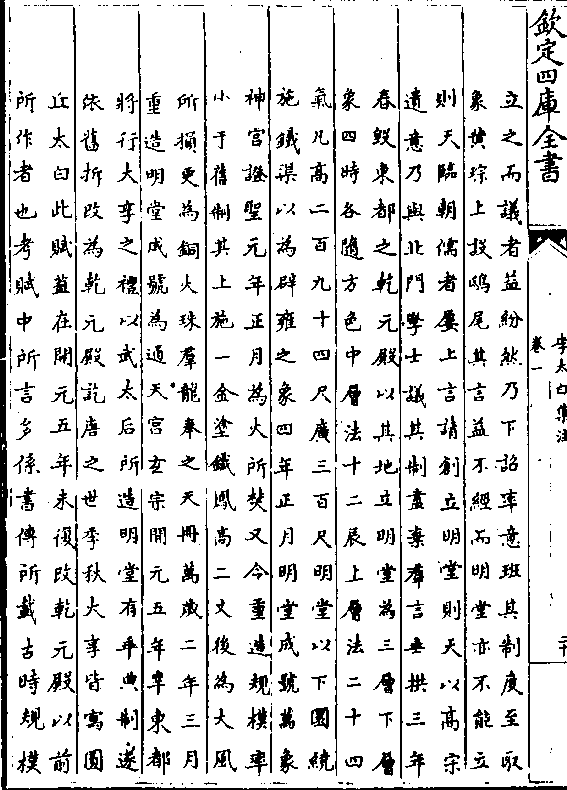 欽定四庫全書
李太白集注
卷一
二十
立之而議者益紛然乃下詔率意班其制度至取
象黄琮上設鴟尾其言益不經而明堂亦不能立
則天臨朝儒者屢上言請創立明堂則天以高宗
遺意乃與北門學士議其制盡棄羣言垂拱三年
春毀東都之乾元殿以其地立明堂為三層下層
象四時各隨方色中層法十二辰上層法二十四
氣凡高二百九十四尺廣三百尺明堂以下圜繞
施鐵渠以為辟雍之象四年正月明堂成號萬象
神宮證聖元年正月為火所焚又令重造規模率
小于舊制其上施一金塗鐵鳳高二丈後為大風
所損更為銅火珠羣龍奉之天冊萬歲二年三月
重造明堂成號為通天宮玄宗開元五年幸東都
將行大享之禮以武太后所造明堂有乖典制遂
依舊折改為乾元殿訖唐之世季秋大享皆寓圜
丘太白此賦蓋在開元五年未復改乾元殿以前
所作者也考賦中所言多係書傳所載古時規模